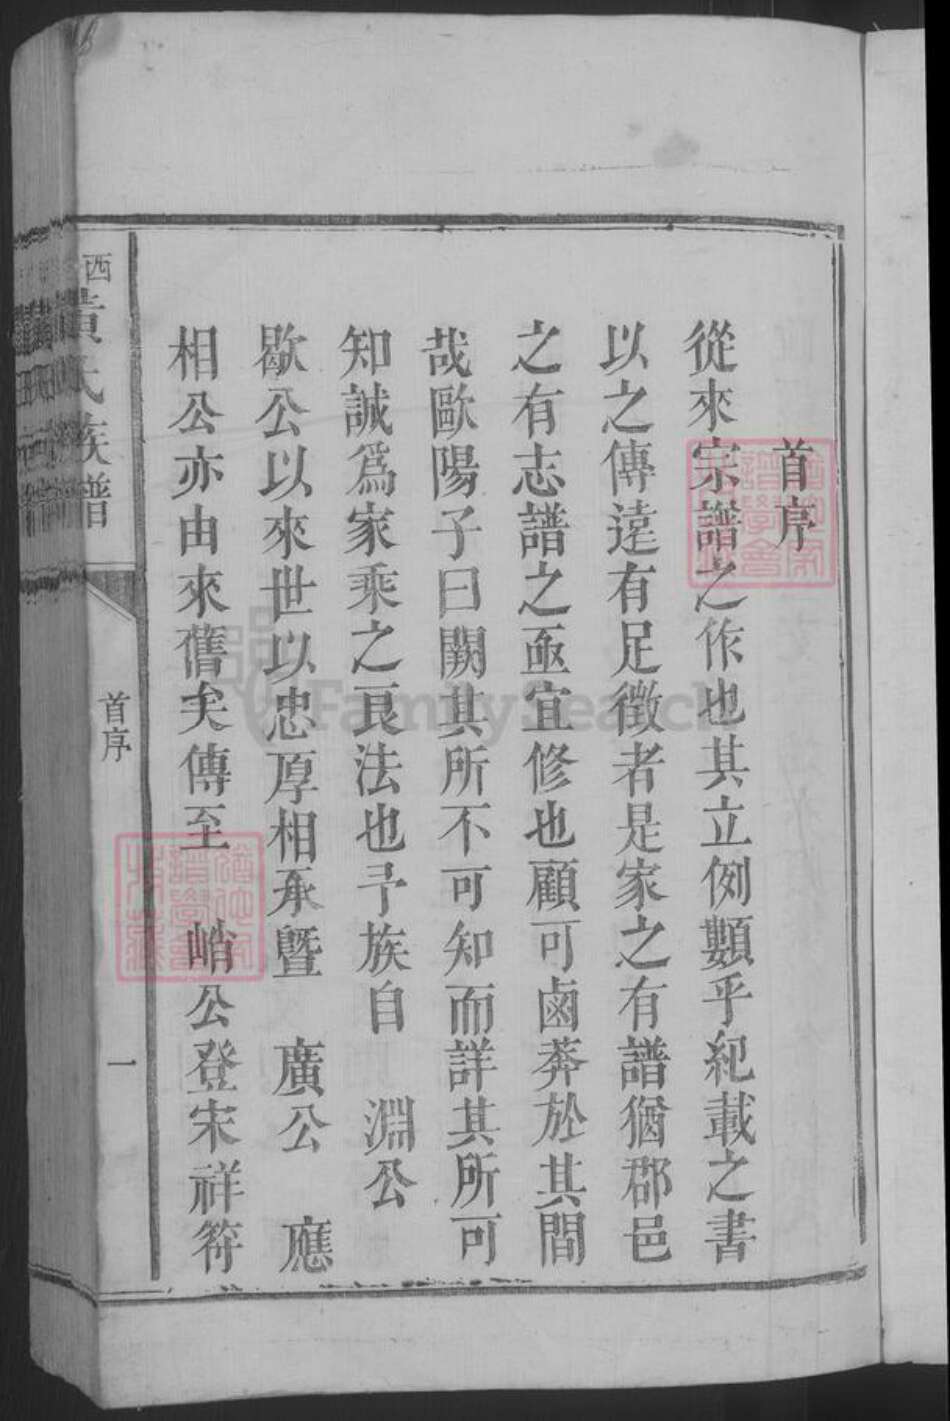 首序
從來宗譜之作也其立例類乎紀載之書
以之傳遠有足徵者是家之有譜猶郡邑
之有志譜之亟宜修也顧可鹵莽於其間
哉歐陽子曰闕其所不可知而詳其所可
知誠爲家乘之良法也予族自 淵公
歇公以來世以忠厚相承暨 廣公 應
相公亦由來舊矣傳至 峭公登宋祥符
西黃氏族譜
首序
一
FamilySearch